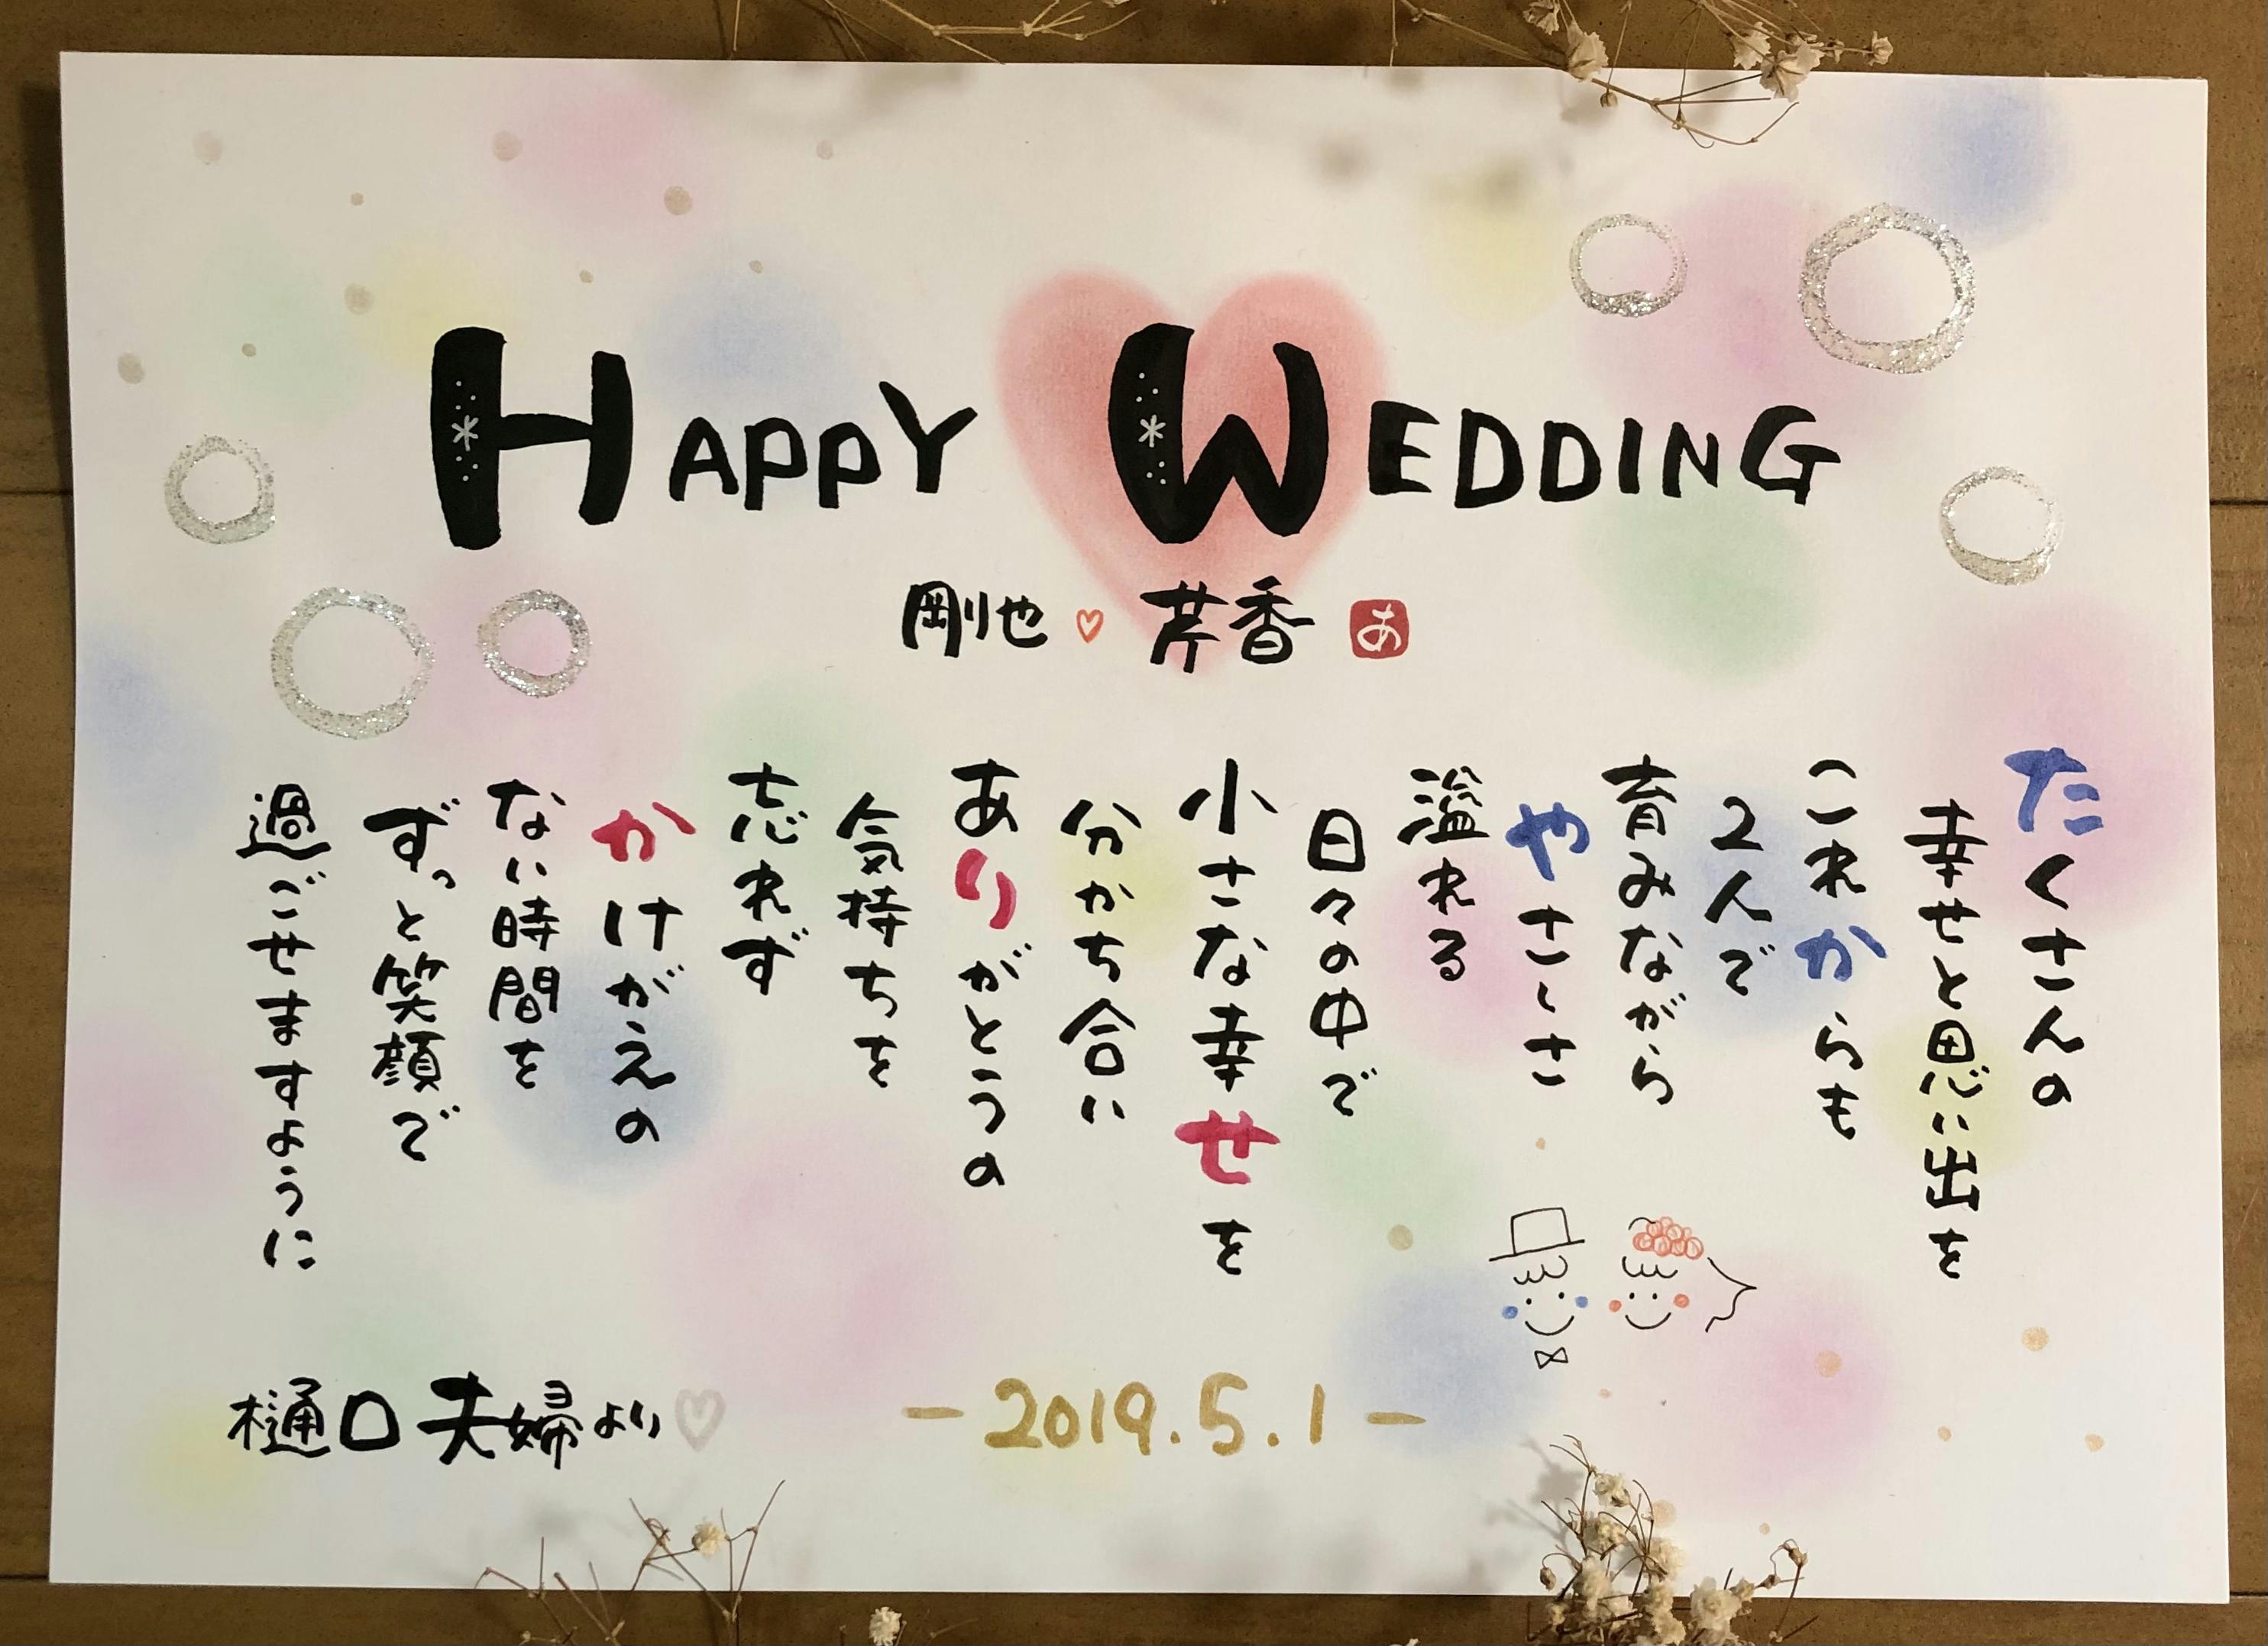 HAPPY WEDDING
剛也♡芹香 あ
たくさんの
幸せと思い出を
これからも
2人で
育みながら
やさしさ
溢れる
日々の中で
小さな幸せを
分かち合い
ありがとうの
気持ちを
忘れず
かけがえの
ない時間を
ずっと笑顔で
過ごせますように
樋口夫婦より♡
-2019.5.1-